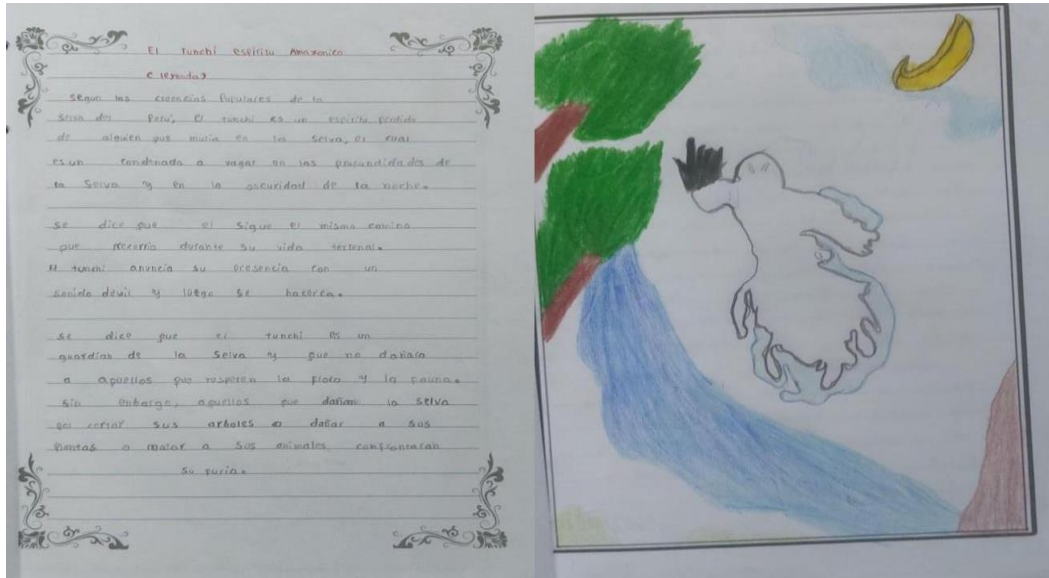 El Tunchi espíritu Amazonico
(leyenda)
segun las creencias Populares de la
selva del Perú, El tunchi es un espíritu perdido
de alguien que muria en la selva, el cual
es un condenado a vagar en las profundidades de
la Selva y en la oscuridad de la noche.
se dice que el sigue el mismo camino
que recorria durante su vida terrenal.
El tunchi anuncia su presencia con un
sonido devil y luego se hacerca.
se dice que el tunchi es un
guardian de la Selva y que no dañara
a aquellos que respeten la flora y la fauna.
sin enbargo, aquellos que dañan la selva
por cortar sus arboles o dañar a sus
Plantas o matar a sus animales confrontaran
su furia.